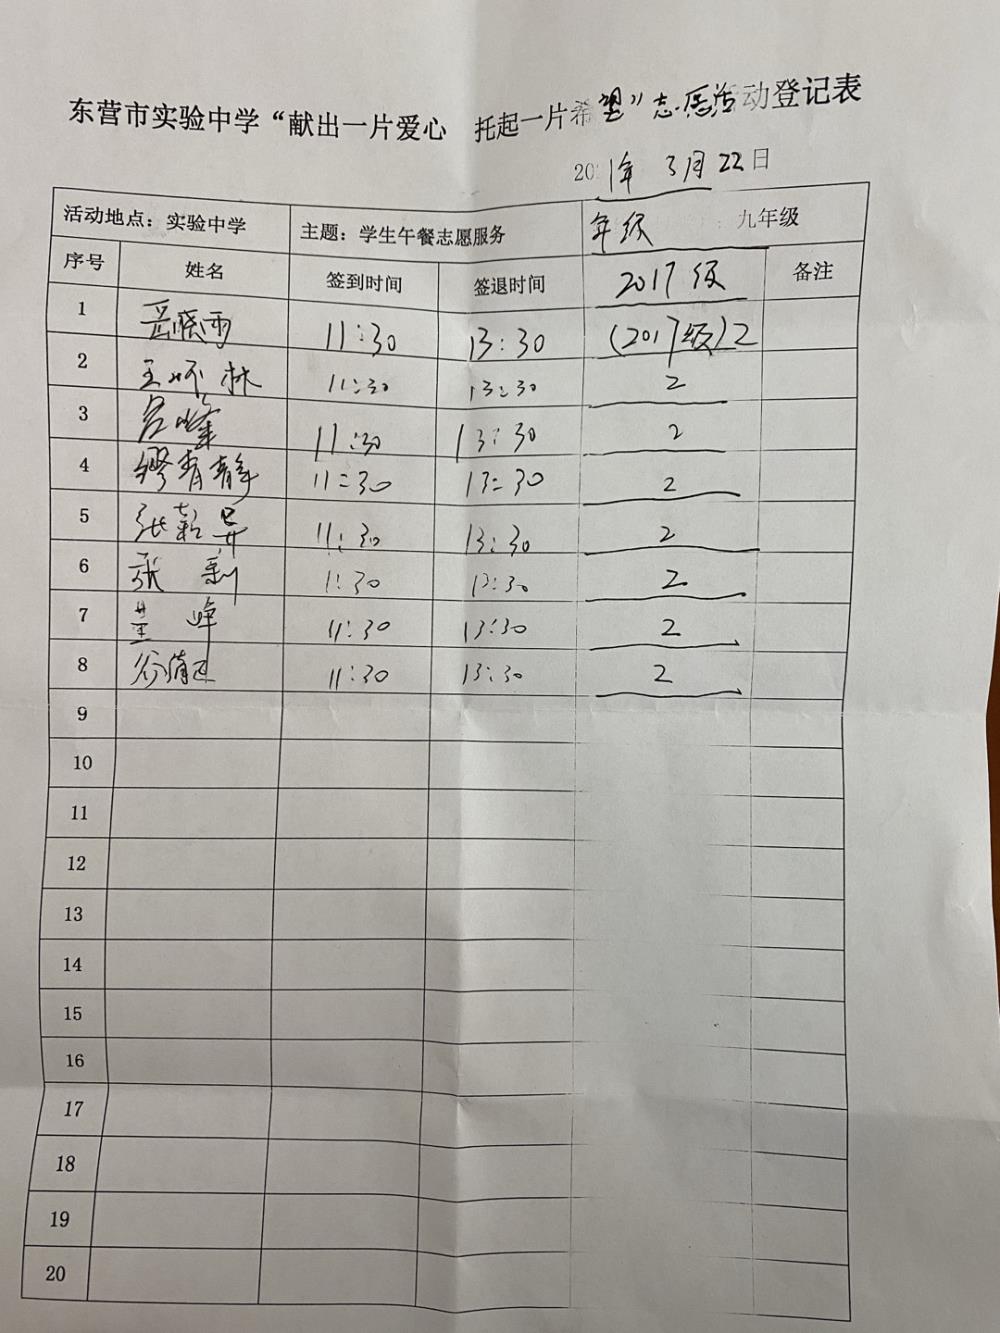 东营市实验中学“献出一片爱心 托起一片希望”志愿活动登记表
2021年 3月22日
活动地点：实验中学 主题：学生午餐志愿服务 年级：九年级
序号 姓名 签到时间 签退时间 2017级 备注
1 岳晓雨 11:30 13:30 (2017级)2
2 王怀林 11:30 13:30 2
3 吕峰 11:30 13:30 2
4 缪青静 11:30 13:30 2
5 张 11:30 13:30 2
6 张利 1:30 13:30 2
7 董峰 11:30 13:30 2
8 11:30 13:30 2
9
10
11
12
13
14
15
16
17
18
19
20